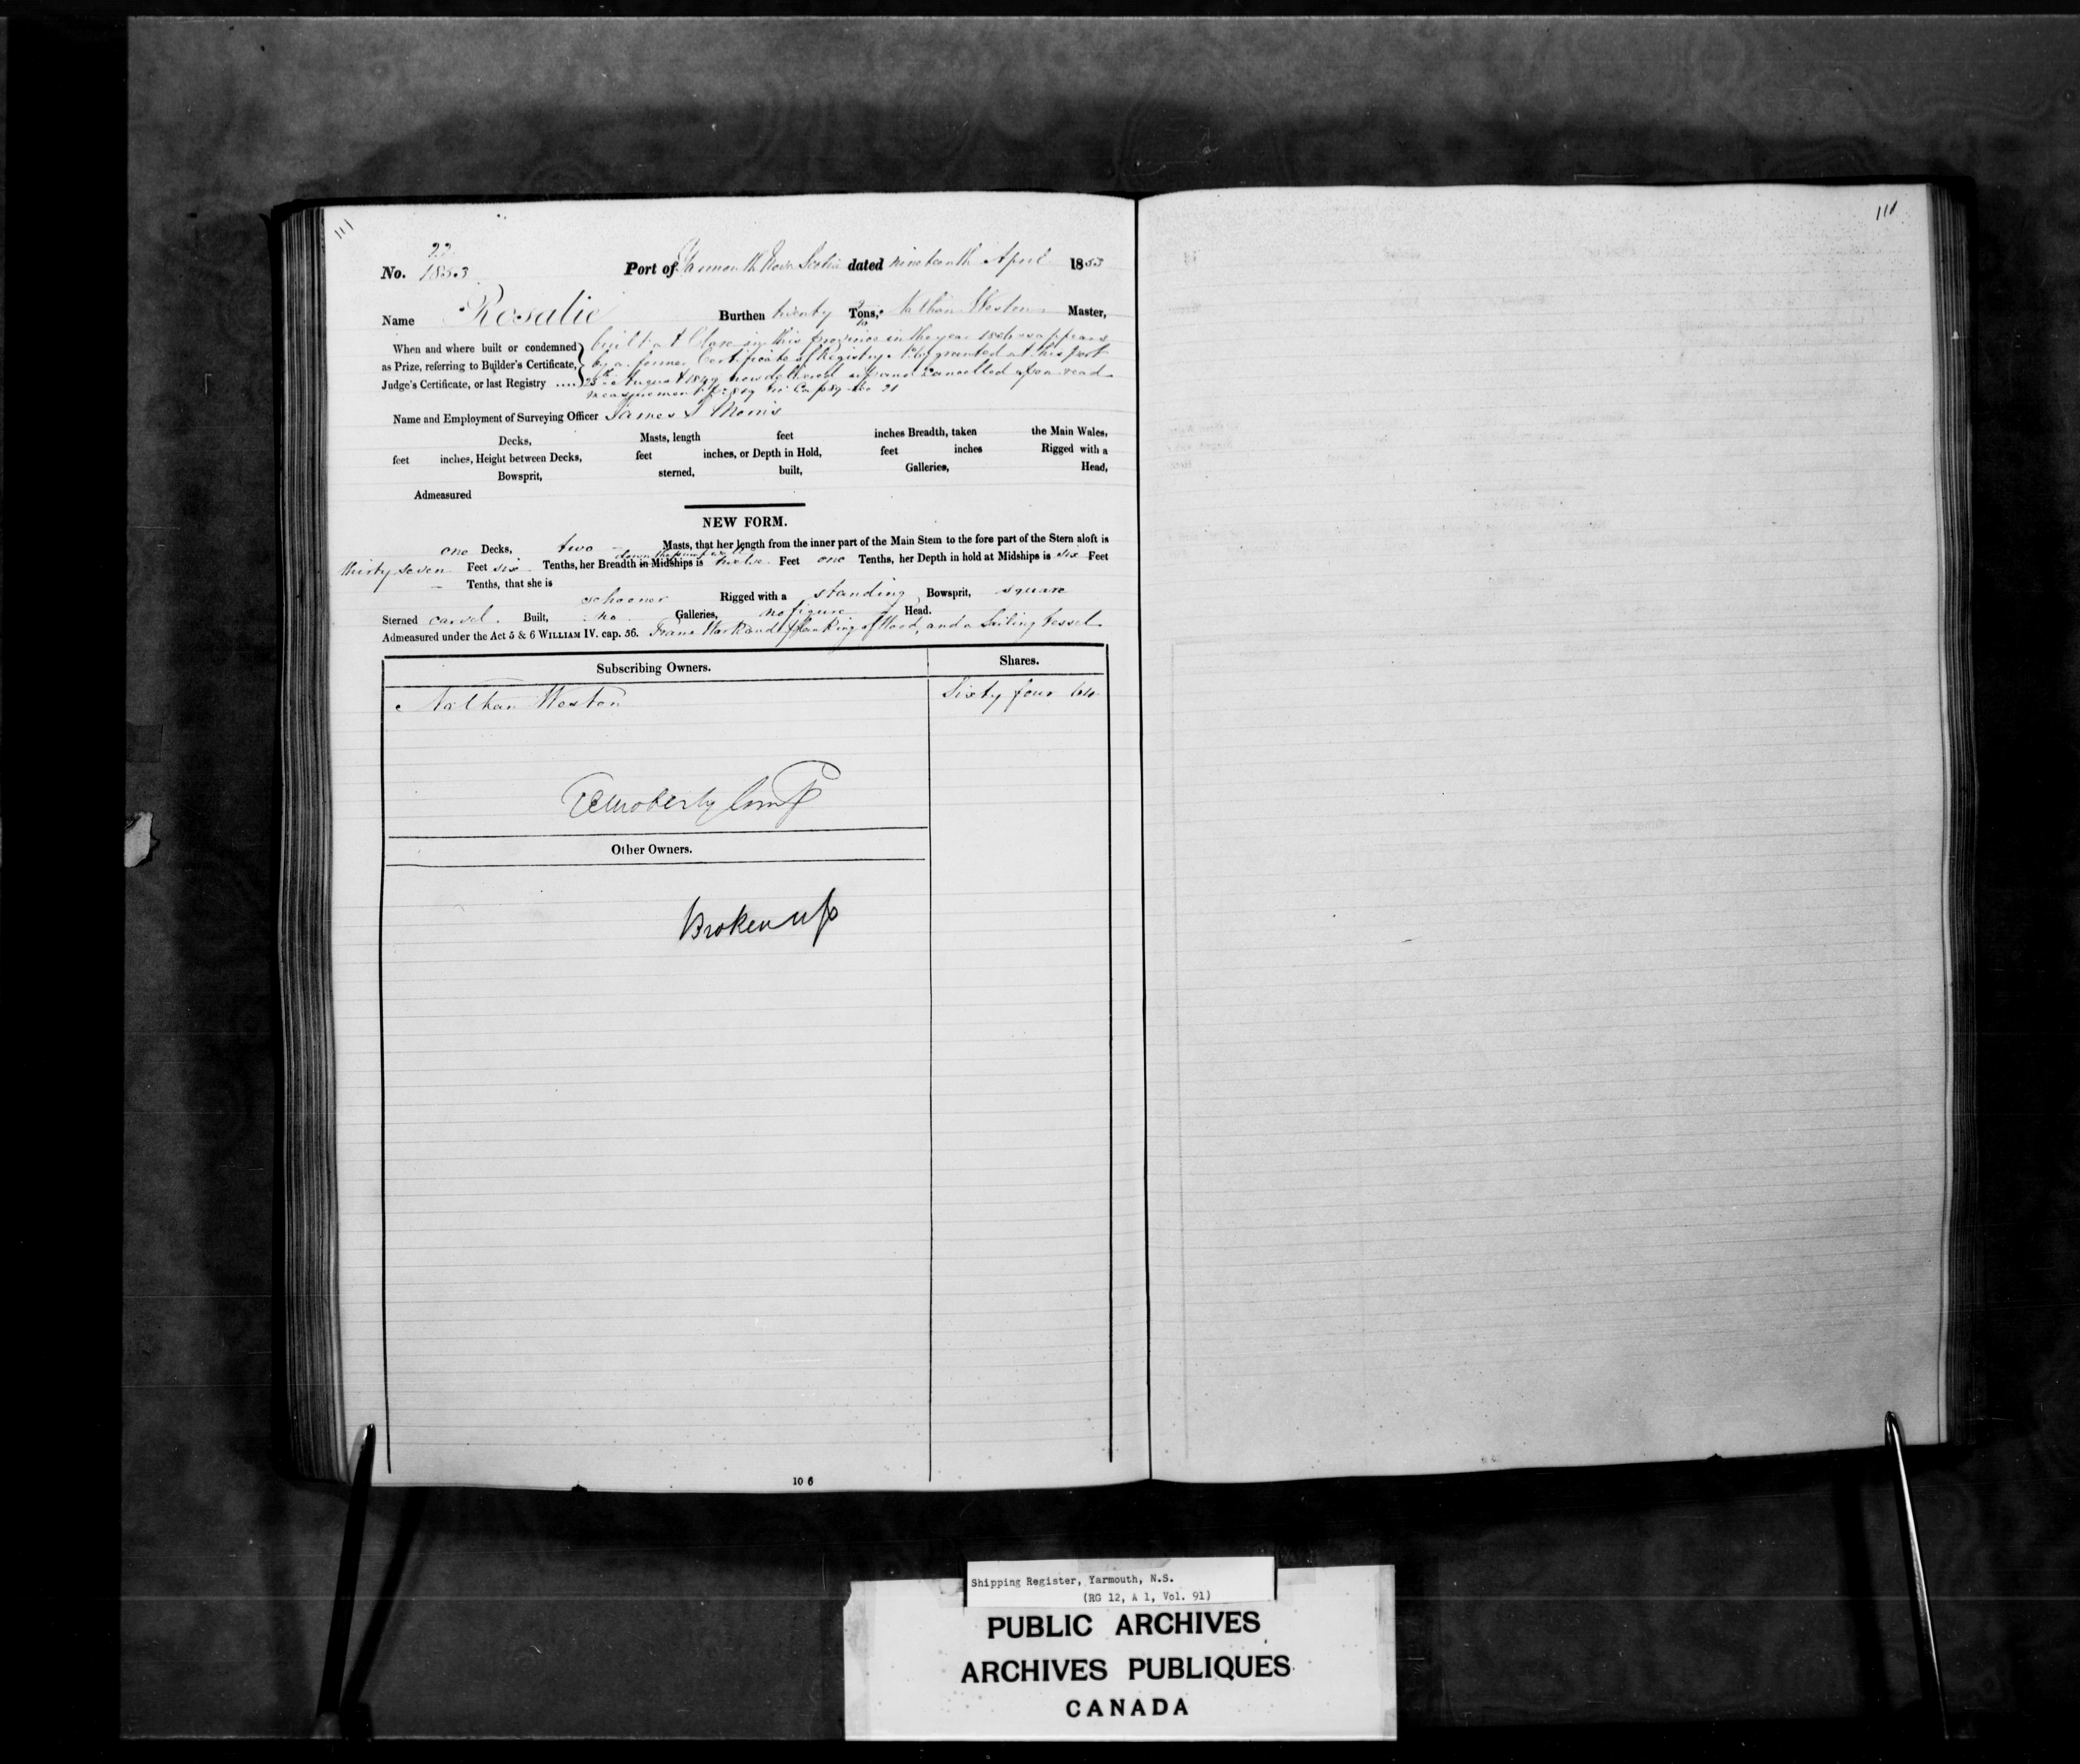 111
111
22
No. 1853 Port of Yarmouth Nova Scotia dated nineteenth April 1853
Name Rosalie Burthen twenty Tons, Nathan Weston Master,
When and where built or condemned built at Clare in this province in the year 1846 as appears
as Prize, referring to Builder's Certificate, by a former Certificate of Registry granted at this port
Judge's Certificate, or last Registry .... 28th August 1849 now delivered up and cancelled upon read
measurement No 21
Name and Employment of Surveying Officer James S Morris
Decks, Masts, length feet inches Breadth, taken the Main Wales,
feet inches, Height between Decks, feet inches, or Depth in Hold, feet inches Rigged with a
Bowsprit, sterned, built, Galleries, Head,
Admeasured
NEW FORM.
one Decks, two Masts, that her length from the inner part of the Main Stem to the fore part of the Stern aloft is
down the pump well
thirty seven Feet six Tenths, her Breadth in Midships is twelve Feet one Tenths, her Depth in hold at Midships is six Feet
— Tenths, that she is
schooner Rigged with a standing Bowsprit, square
Sterned carvel Built, no Galleries, no figure Head.
Admeasured under the Act 5 & 6 WILLIAM IV. cap. 56. Frame Work and planking of Wood, and a Sailing Vessel
Subscribing Owners. Shares.
Nathan Weston Sixty four 64
Other Owners.
Broken up
10 6
Shipping Register, Yarmouth, N.S.
(RG 12, A 1, Vol. 91)
PUBLIC ARCHIVES
ARCHIVES PUBLIQUES
CANADA